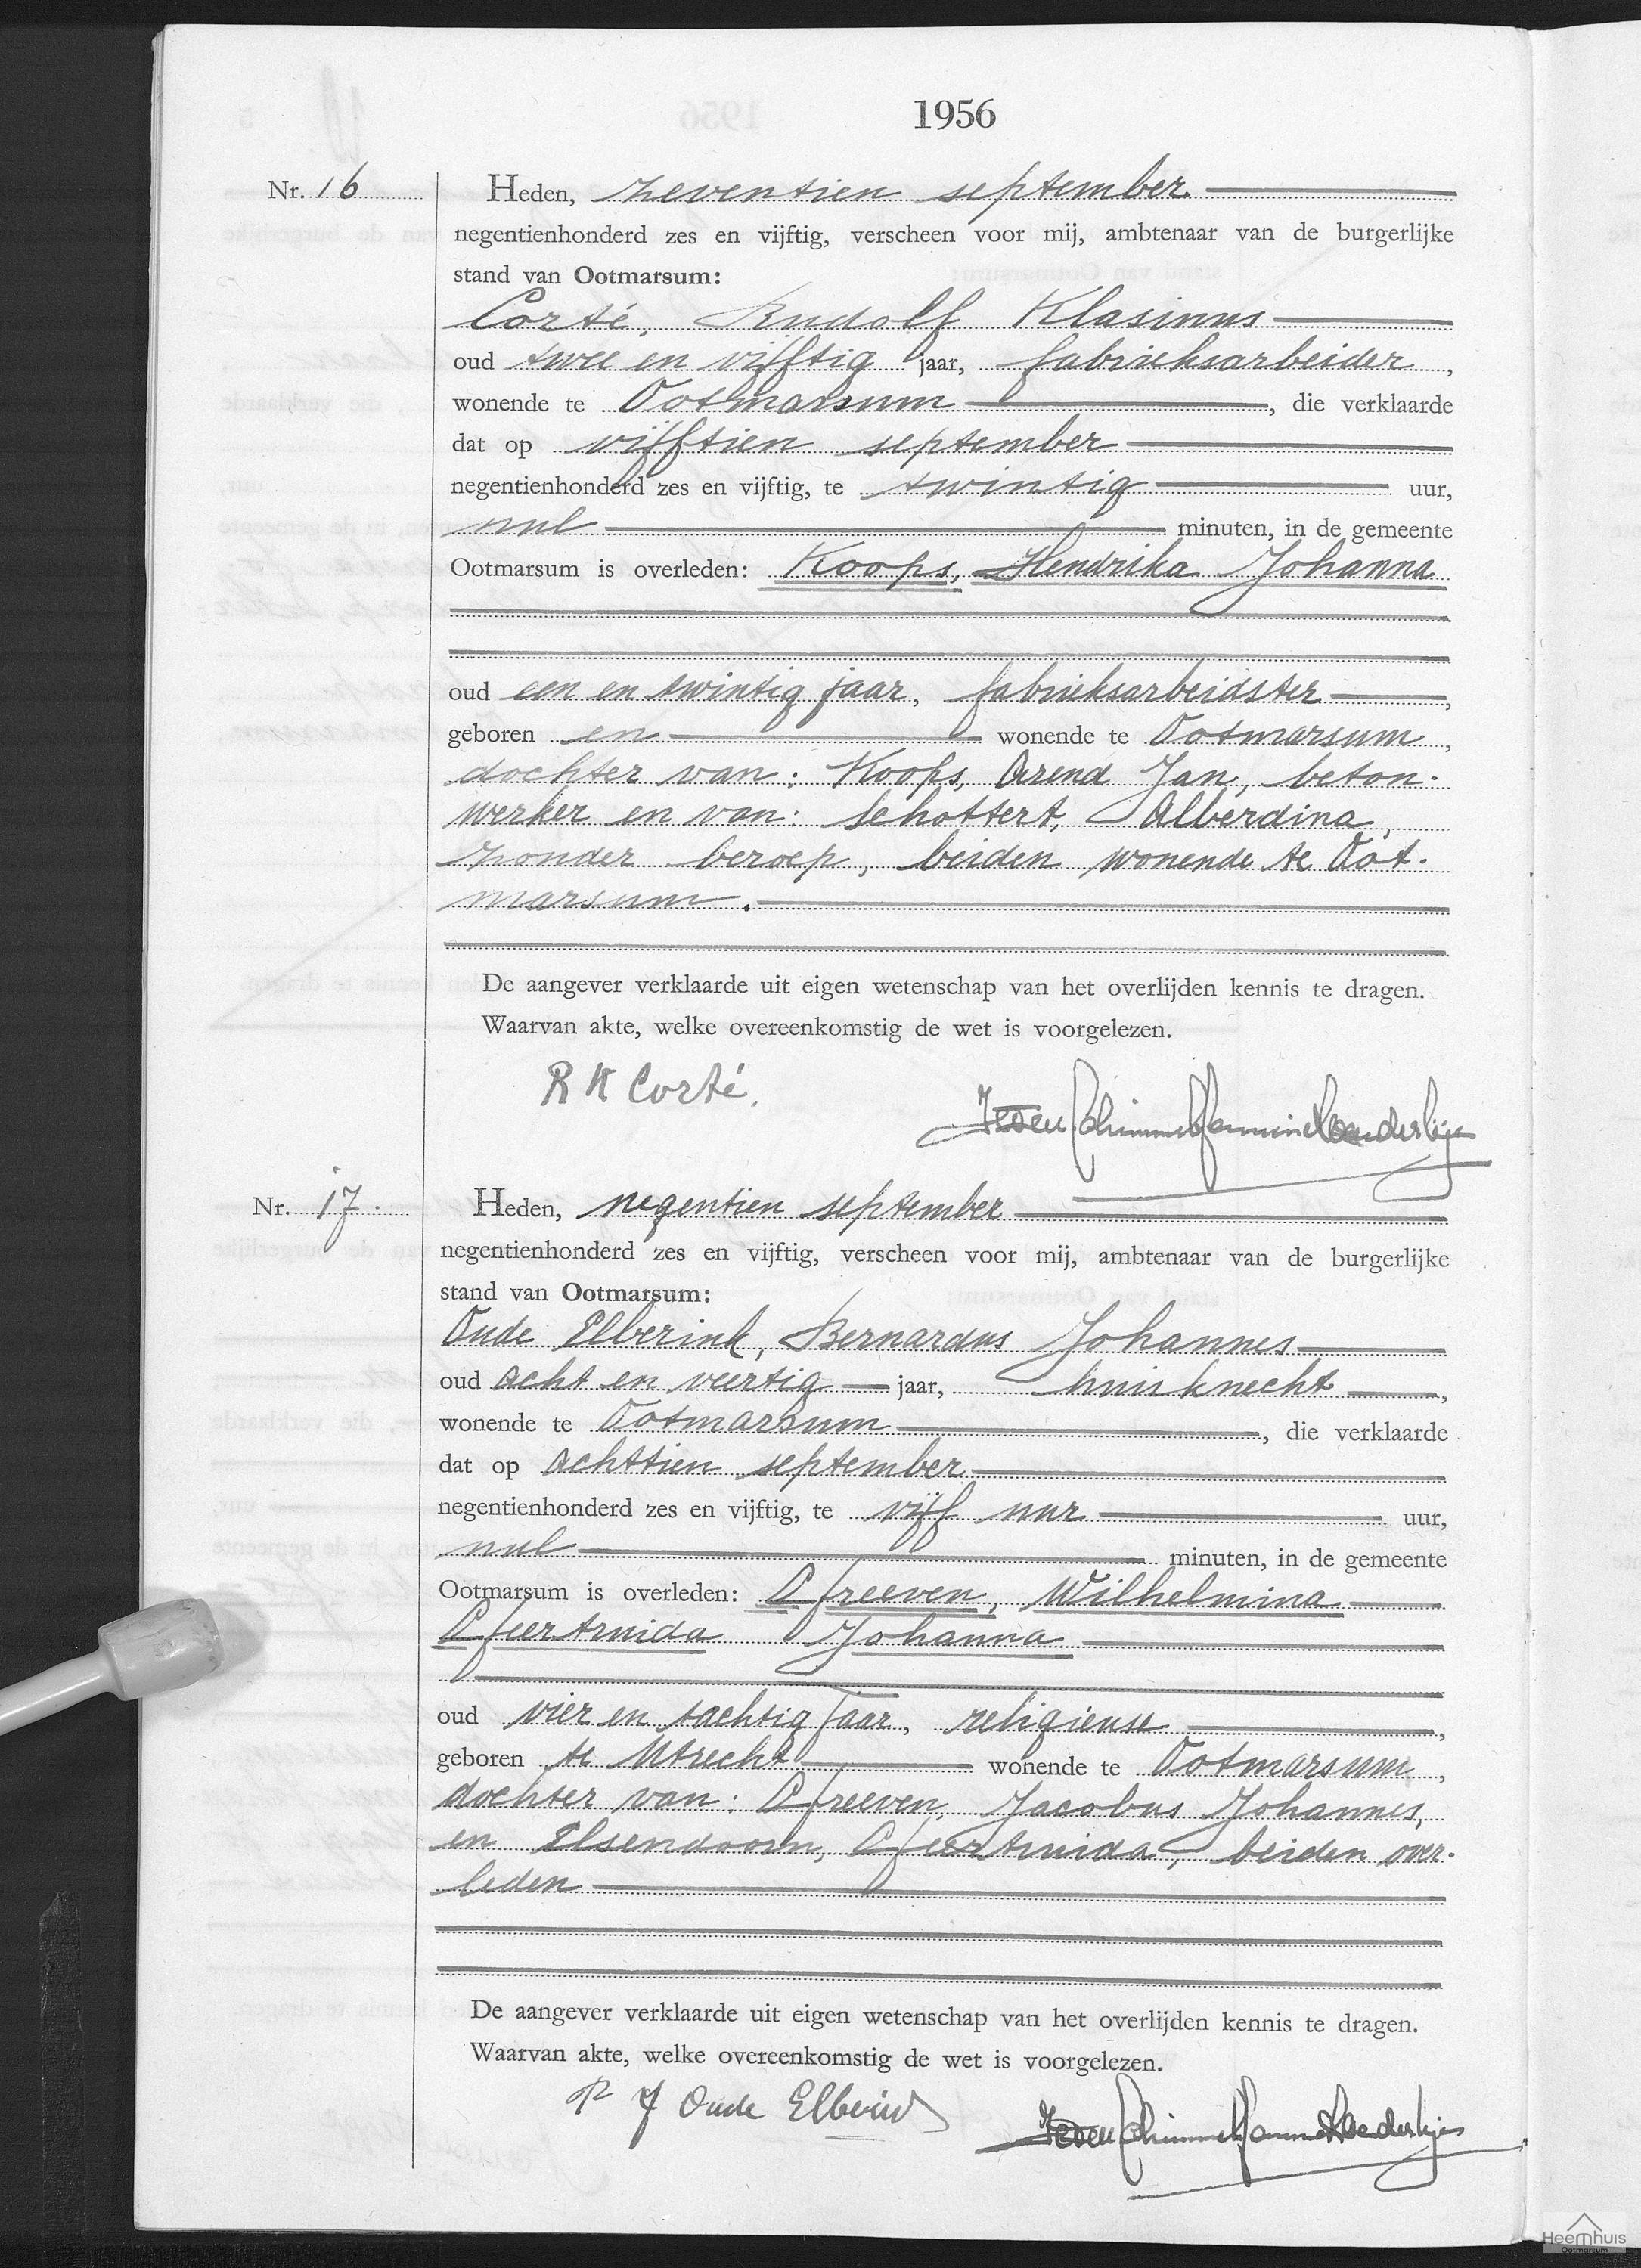 1956
Nr. 16
Heden, zeventien september
negentienhonderd zes en vijftig, verscheen voor mij, ambtenaar van de burgerlijke
stand van Ootmarsum:
Corté, Rudolf Klasinus
oud twee en vijftig jaar, fabrieksarbeider,
wonende te Ootmarsum, die verklaarde
dat op vijftien september
negentienhonderd zes en vijftig, te twintig uur,
nul minuten, in de gemeente
Ootmarsum is overleden: Koops, Hendrika Johanna
oud een en twintig jaar, fabrieksarbeidster,
geboren en wonende te Ootmarsum,
dochter van: Koops, Arend Jan, beton-
werker en van: Schottert, Alberdina,
zonder beroep, beiden wonende te Oot-
marsum.
De aangever verklaarde uit eigen wetenschap van het overlijden kennis te dragen.
Waarvan akte, welke overeenkomstig de wet is voorgelezen.
R K Corté.
Nr. 17.
Heden, negentien september
negentienhonderd zes en vijftig, verscheen voor mij, ambtenaar van de burgerlijke
stand van Ootmarsum:
Oude Elberink, Bernardus Johannes
oud acht en veertig jaar, huisknecht,
wonende te Ootmarsum, die verklaarde
dat op achttien september
negentienhonderd zes en vijftig, te vijf uur uur,
nul minuten, in de gemeente
Ootmarsum is overleden: Greeven, Wilhelmina
Geertruida Johanna
oud vier en tachtig jaar, religieuse,
geboren te Utrecht wonende te Ootmarsum,
dochter van: Greeven, Jacobus Johannes,
en Elsendoorn, Geertruida, beiden over-
leden
De aangever verklaarde uit eigen wetenschap van het overlijden kennis te dragen.
Waarvan akte, welke overeenkomstig de wet is voorgelezen.
J Oude Elberink
Heemhuis
Ootmarsum